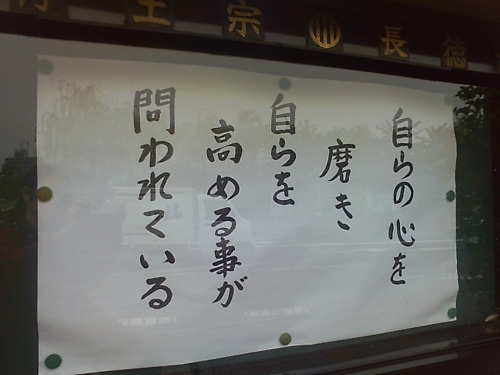 浄土宗 長徳
自らの心を
磨き
自らを
高める事が
問われている